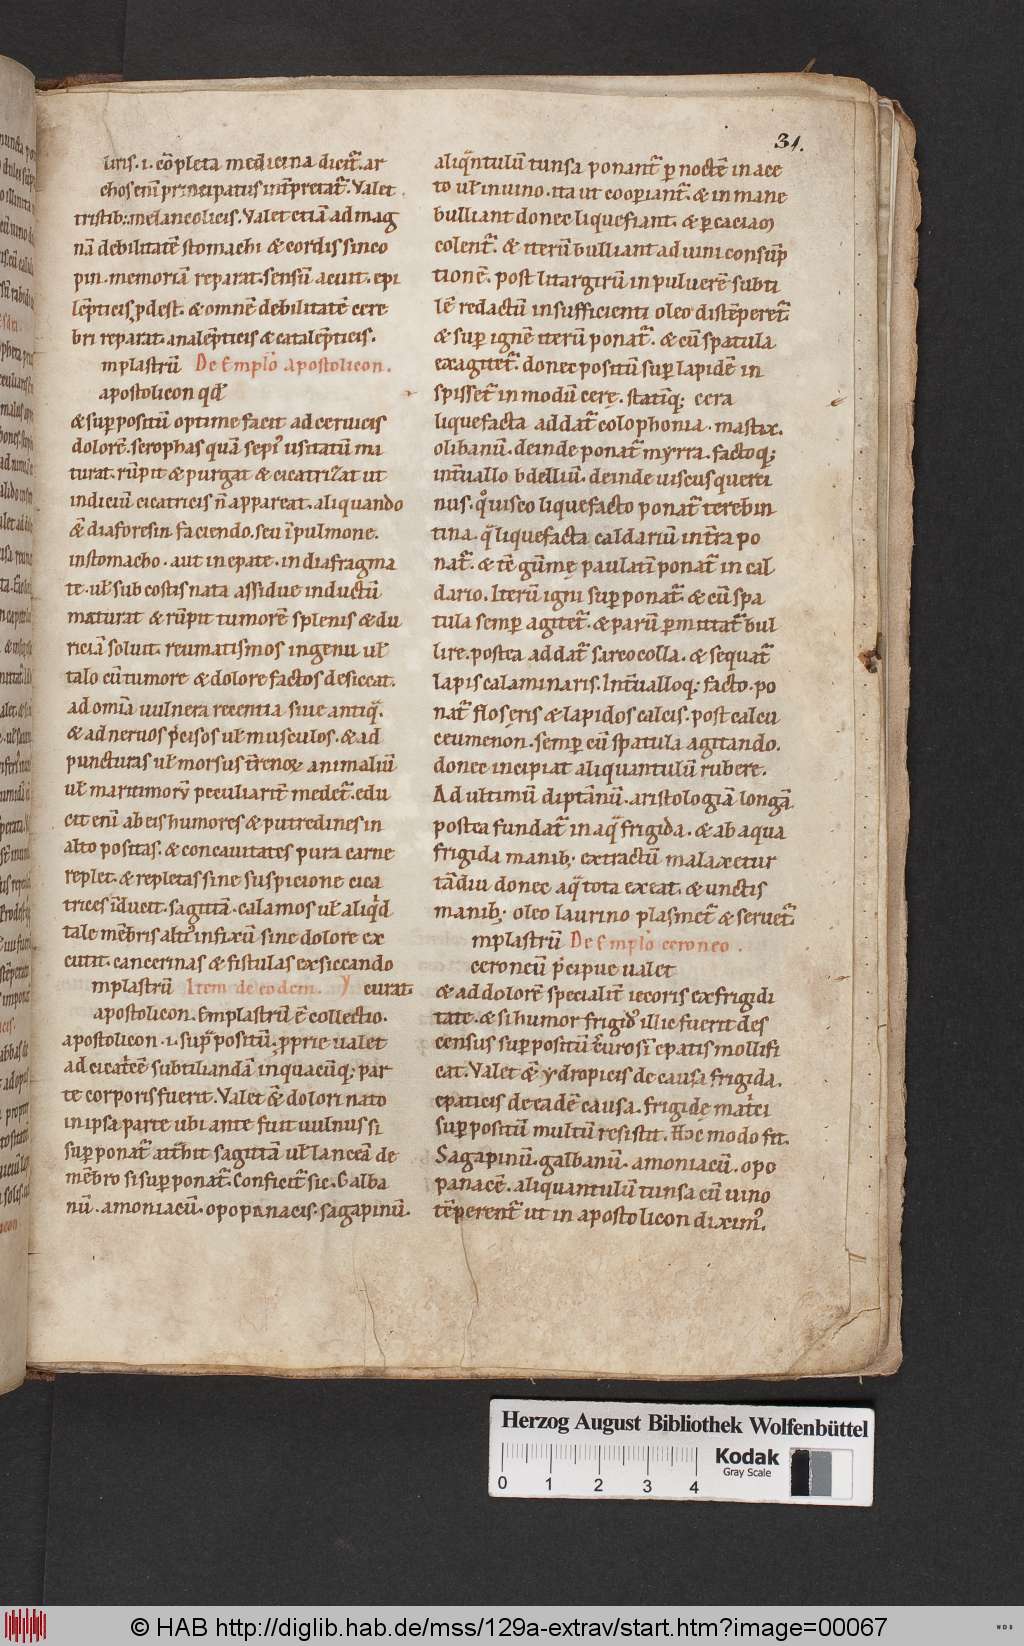 31.
liris .i. cōpleta medicina dicit̄. ar
chos enī principatus int̄pretat̄. Valet
tristib;. melancolicis. Valet etiā ad mag
nā debilitatē stomachi & cordis sinco
pin. memoriā reparat. sensū acuit. epi
lēpticis p̄dest. & omnē debilitatē cere
bri reparat. analēpticis & catalēpticis.
mplastrū De Emplō apostolicon.
apostolicon qd̄
& sup positū optime facit ad cervicis
dolorē. scrophas quā sepi' usitatū ma
turat. rūpit & purgat & cicatrizat ut
indiciū cicatricis n̄ appareat. aliquando
& diaforesin faciendo. seu ī pulmone.
in stomacho. aut in epate. in diafragma
te. ul' sub costis nata assidue inductū
maturat & rūpit tumorē splenis & du
riciā soluit. reumatismos in genu ul'
talo cū tumore & dolore factos desiccat.
ad omīa uulnera recentia siue antiq̄.
& ad neruos p̄cisos ul' musculos. & ad
puncturas ul' morsus t̄renoꝝ animaliū
ul' maritimoꝝ peculiarit̄ medet̄. edu
cit enī ab eis humores & putredines in
alto positas. & concauitates pura carne
replet. & repletas sine suspicione cica
trices īducit. sagittā. calamos ul' aliq̄d
tale mēbris alti' infixū sine dolore ex
cutit. cancerinas & fistulas exsiccando
mplastrū Item de eodem. curat.
apostolicon. Emplastrū ē collectio.
apostolicon .i. sup̄ positū. p̄prie ualet
ad cicat̄cē subtiliandā in quacūq; par
te corporis fuerit. Valet & dolori nato
in ipsa parte ubi ante fuit uulnus si
sup ponat̄ att̄hit sagittā ul' lanceā de
mēbro si sup ponat̄. Conficit̄ sic. Galba
nū. amoniacū. opopanacis. sagapinū.
aliq̄ntulū tunsa ponant̄ p noctē in ace
to ul' in uino. ita ut coopiant̄. & in mane
bulliant donec liquefiant. & p caciam
colent̄. & iterū bulliant ad uini consūp
tionē. post litargirū in puluerē subti
lē redactū in sufficienti oleo distēperet̄
& sup ignē iterū ponat̄. & cū spatula
exagitet̄. donec positū sup lapidē in
spisset̄ in modū cerę. statiq; cera
liquefacta addat̄ colophonia. mastix.
olibanū. deinde ponat̄ myrra. factoq;
int̄uallo bdelliū. deinde uiscus querci
nus. q̊ uisco liquefacto ponat̄ terebin
tina. q̄ liquefacta caldariū in t̄ra po
nat̄. & tē gūmę paulatī ponat̄ in cal
dario. Iterū igni sup ponat̄ & cū spa
tula semp agitet̄. & parū pmittat̄ bul
lire. postea addat̄ sarcocolla. & sequat̄
lapis calaminaris. Int̄ualloq; facto. po
nat̄ flos ęris & lapidos calcis. post calcu
ceumenon. semp cū spatula agitando.
donec incipiat aliquantulū rubere.
Ad ultimū diptānū. aristologiā longā
postea fundat̄ in aq̄ frigida. & ab aqua
frigida manib; extractū malaxetur
tādiu donec aq̄ tota exeat. & unctis
manib; oleo laurino plasmet̄ & seruet̄
mplastrū De Emplō ceroneo.
ceroneū p̄cipue ualet
& ad dolorē specialit̄ iecoris ex frigidi
tate. & si humor frigid' illic fuerit des
census sup positū t̄ eurosī epatis mollifi
cat. Valet & ydropicis de causa frigida.
epaticis de eadē causa. frigide mat̄ei
sup positū multū resistit. Hoc modo fit.
Sagapinū. galbanū. amoniacū. opo
panacē. aliquantulū tunsa cū uino
tēperent̄ ut in apostolicon dixim'.
Herzog August Bibliothek Wolfenbüttel
Kodak
Gray Scale
0 1 2 3 4
© HAB http://diglib.hab.de/mss/129a-extrav/start.htm?image=00067